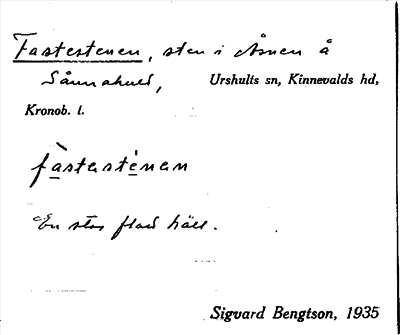 Fastestenen, sten i Åsnen å
Sånnahult, Urshults sn, Kinnevalds hd,
Kronob. l.
fàstesténen
En stor flad häll.
Sigvard Bengtson, 1935